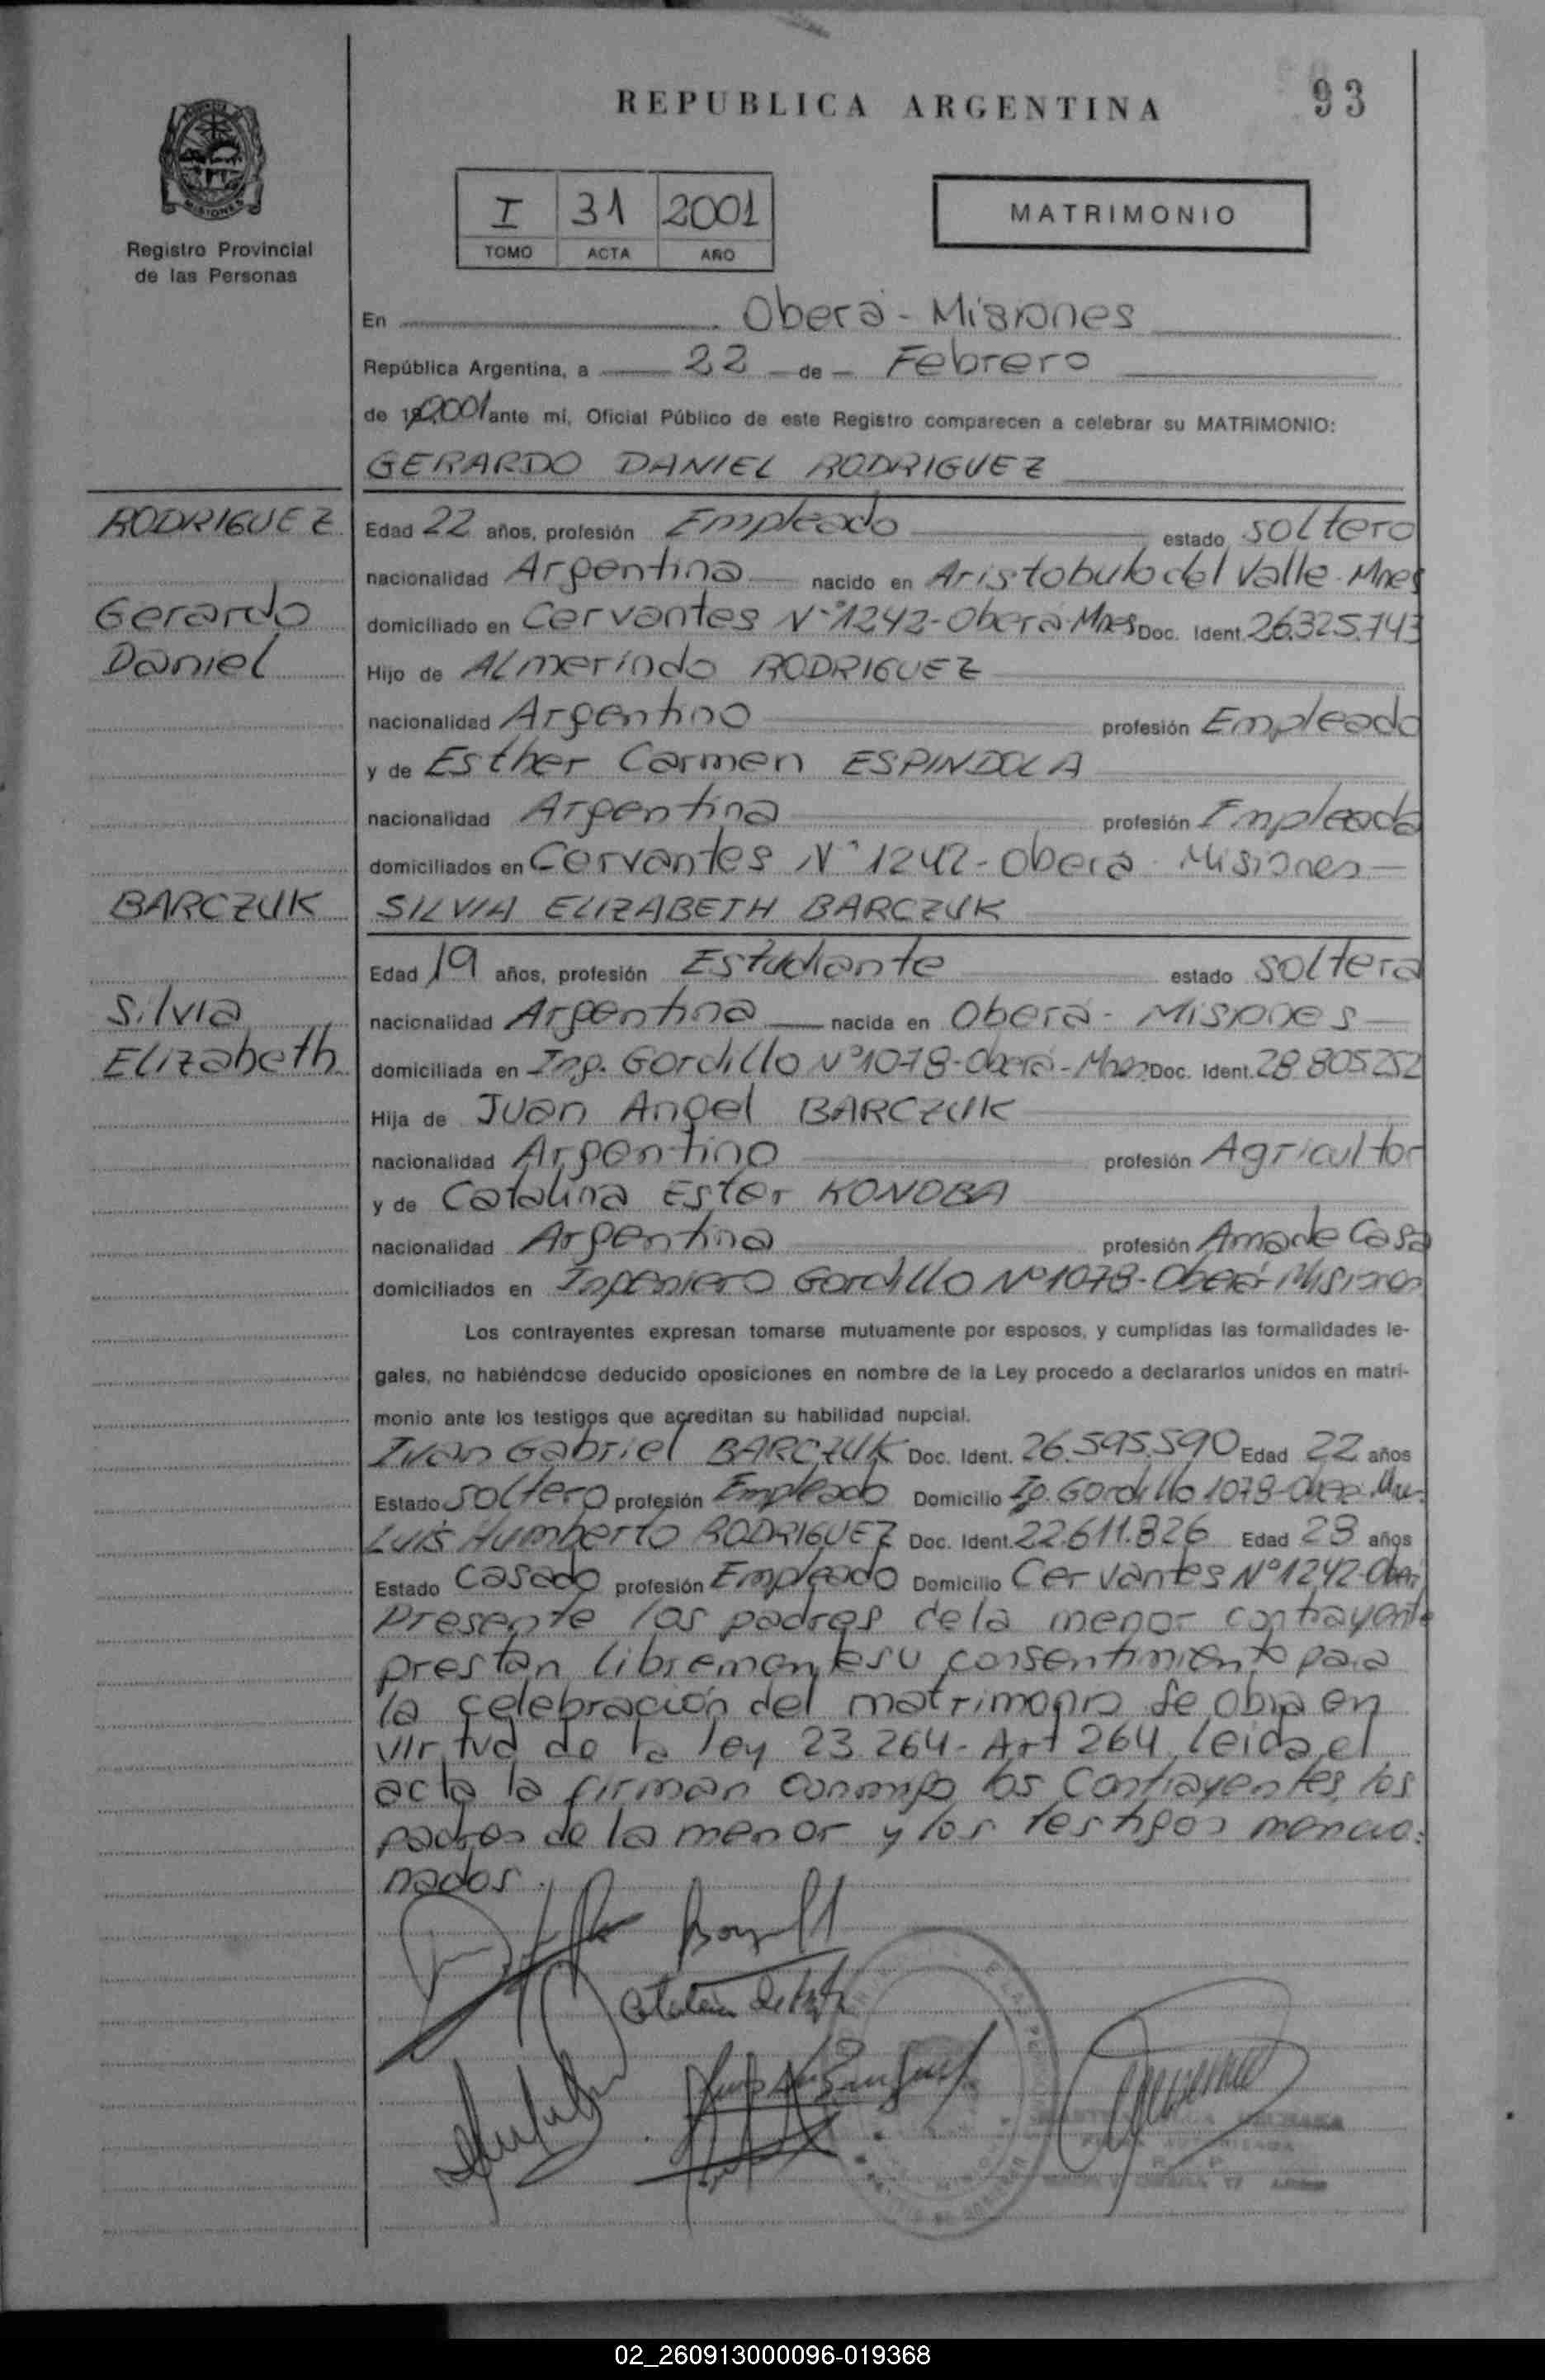 REPUBLICA ARGENTINA
93
MISIONES
Registro Provincial
de las Personas
I 31 2001
TOMO ACTA AÑO
MATRIMONIO
En Oberá - Misiones
República Argentina, a 22 de Febrero
de 192001 ante mí, Oficial Público de este Registro comparecen a celebrar su MATRIMONIO:
GERARDO DANIEL RODRIGUEZ
RODRIGUEZ
Edad 22 años, profesión Empleado estado soltero
nacionalidad Argentina nacido en Aristobulo del Valle - Mnes
Gerardo
domiciliado en Cervantes N°1242-Oberá-Mnes Doc. Ident. 26.325.743
Daniel
Hijo de ALmerindo RODRIGUEZ
nacionalidad Argentino profesión Empleado
y de Esther Carmen ESPINDOLA
nacionalidad Argentina profesión Empleada
domiciliados en Cervantes N° 1242-Oberá - Misiones
BARCZUK
SILVIA ELIZABETH BARCZUK
Edad 19 años, profesión Estudiante estado soltera
Silvia
nacionalidad Argentina nacida en Oberá - Misiones
Elizabeth
domiciliada en Ing. Gordillo N°1078-Oberá-Mnes Doc. Ident. 28.805252
Hija de Juan Angel BARCZUK
nacionalidad Argentino profesión Agricultor
y de Catalina Ester KONOBA
nacionalidad Argentina profesión Ama de Casa
domiciliados en Ingeniero Gordillo N°1078-Oberá-Misiones
Los contrayentes expresan tomarse mutuamente por esposos, y cumplidas las formalidades le-
gales, no habiéndose deducido oposiciones en nombre de la Ley procedo a declararlos unidos en matri-
monio ante los testigos que acreditan su habilidad nupcial.
Ivan Gabriel BARCZUK Doc. Ident. 26.595.590 Edad 22 años
Estado soltero profesión Empleado Domicilio Ig. Gordillo 1078-Oberá-Mnes
Luis Humberto RODRIGUEZ Doc. Ident. 22.611.826 Edad 28 años
Estado Casado profesión Empleado Domicilio Cervantes N°1242-Oberá
Presente los padres de la menor contrayente
prestan libremente su consentimiento para
la celebración del matrimonio se obra en
virtud de la ley 23.264-Art 264, leida el
acta la firman conmigo los contrayentes, los
padres de la menor y los testigos mencio-
nados.
02_260913000096-019368